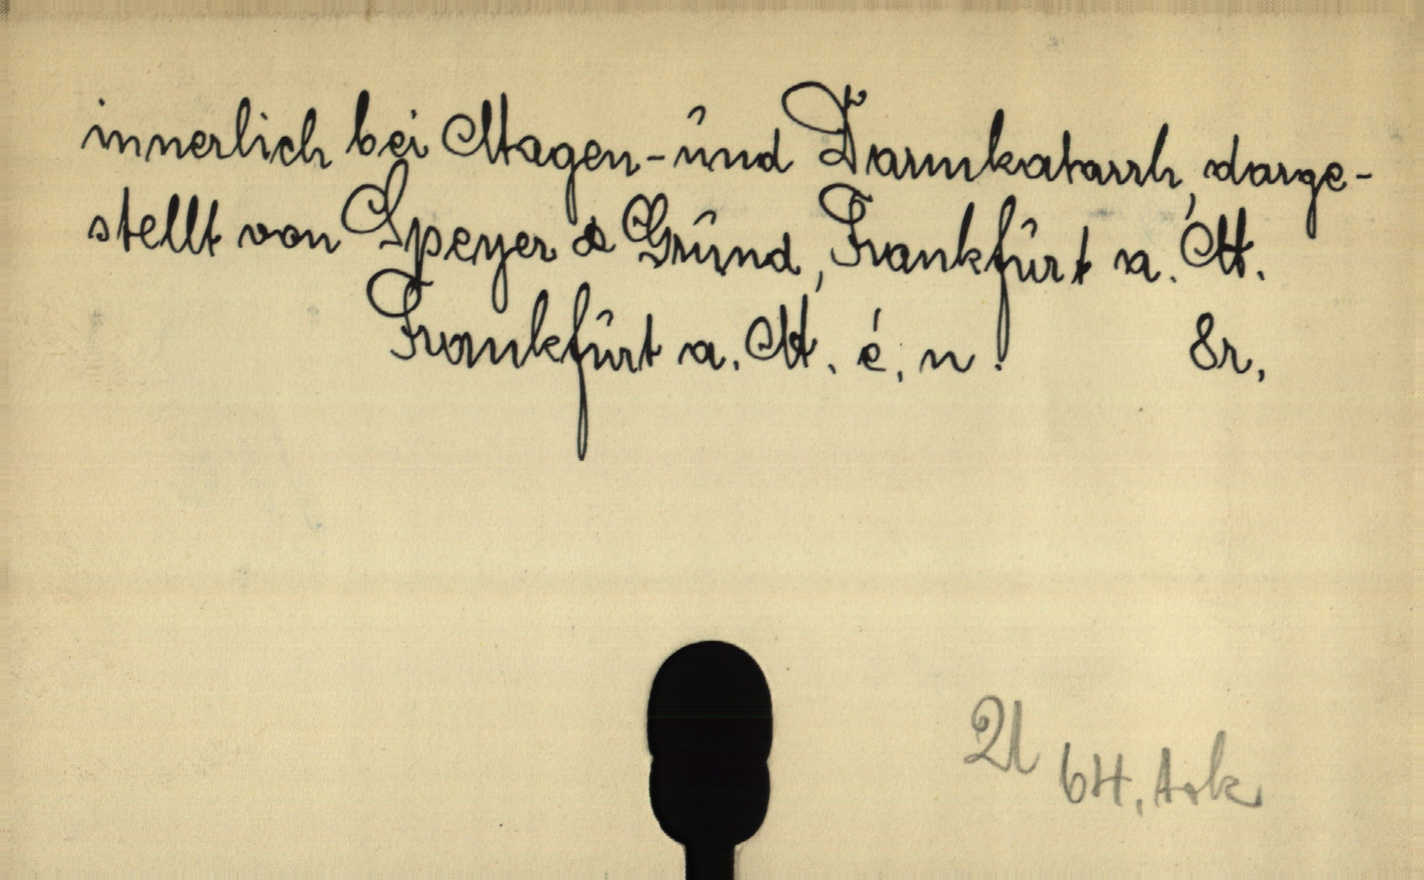 innerlich bei Magen- und Darmkatarrh, darge-
stellt von Speyer & Grund, Frankfurt a. M.
Frankfurt a. M. é. n. 8r,